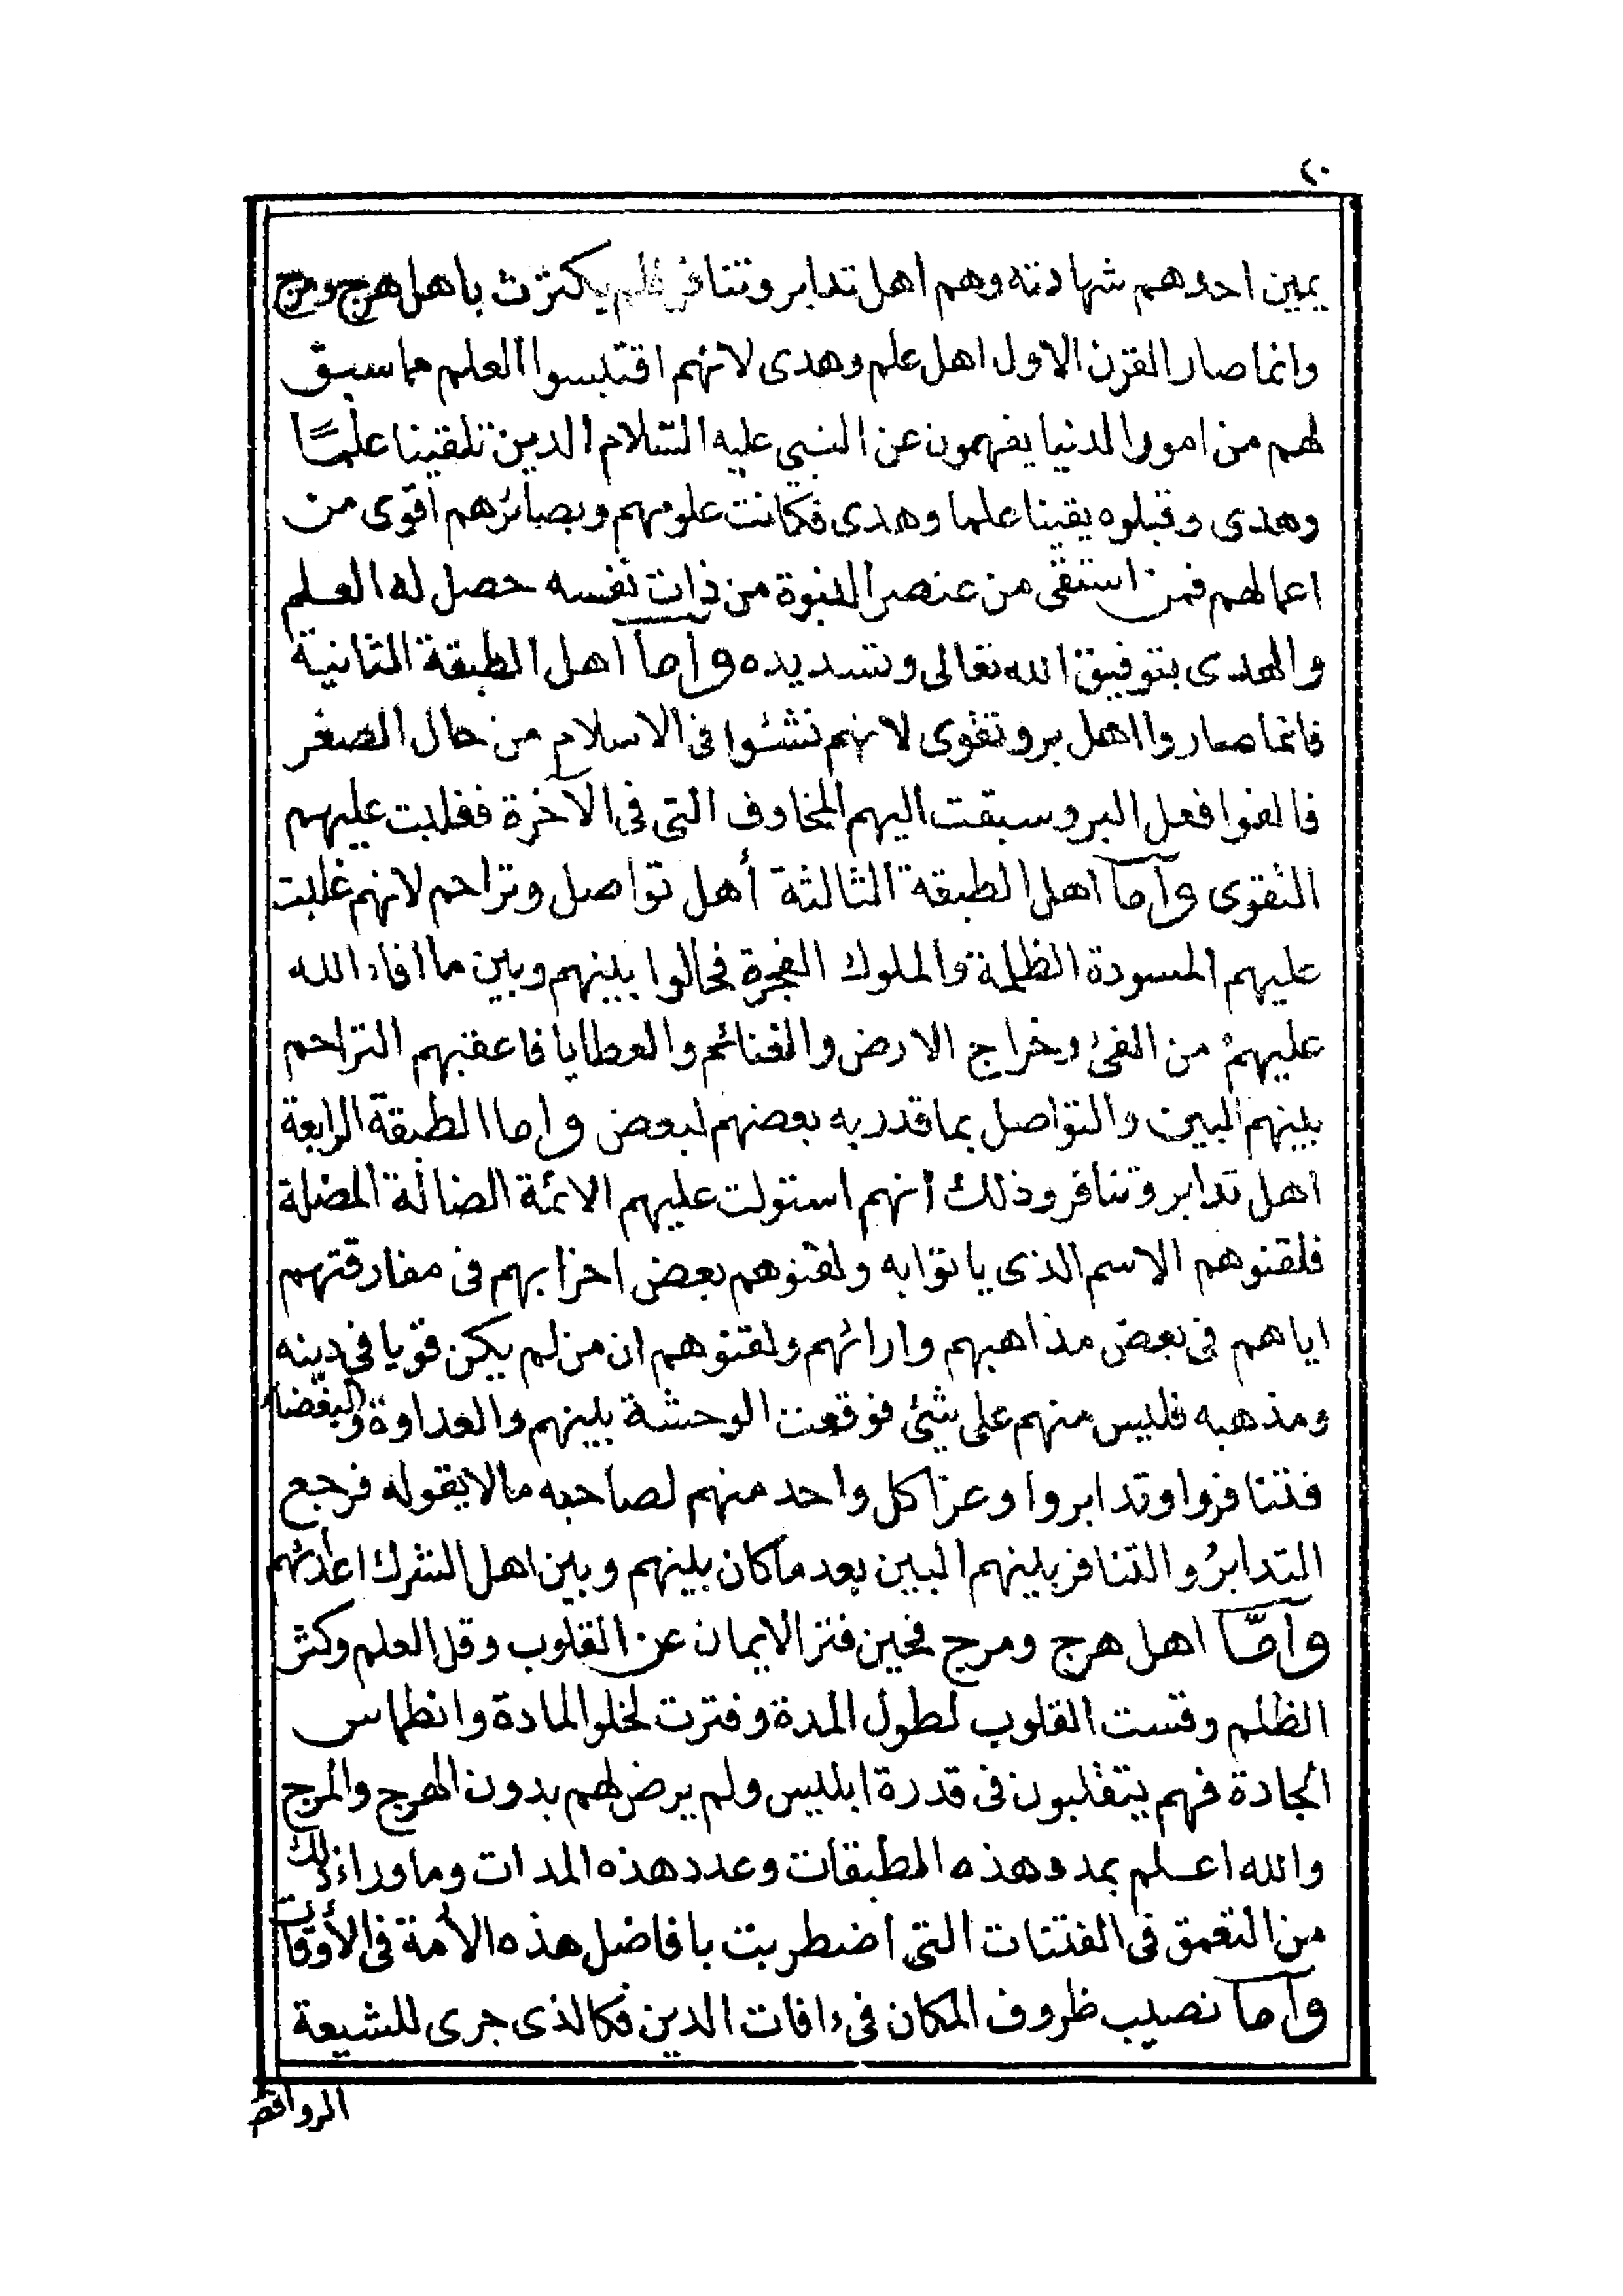 ٢٠
يمين احدهم شهادته وهم اهل تدابر وتنافر فلم يكترث باهل هرج ومرج
وانما صار القرن الاول اهل علم وهدى لانهم اقتبسوا العلم مما سبق
لهم من امور الدنيا يفهمون عن النبي عليه السّلام الدين تلقينا علمًا
وهدى وقبلوه يقينا علما وهدى فكانت علومهم وبصائرهم اقوى من
اعمالهم فمن استقى من عنصر النبوة من ذات نفسه حصل له العلم
والهدى بتوفيق الله تعالى وتسديده وأما اهل الطبقة الثانية
فانما صاروا اهل بر وتقوى لانهم نشئوا فى الاسلام من حال الصغر
فالفوا فعل البر وسبقت اليهم المخاوف التى فى الآخرة فغلبت عليهم
التقوى وأما اهل الطبقة الثالثة أهل تواصل وتراحم لانهم غلبت
عليهم المسودة الظلمة والملوك الفجرة فحالوا بينهم وبين ما افاء الله
عليهم من الفئ وخراج الارض والغنائم والعطايا فاعقبهم التراحم
بينهم البين والتواصل بما قدر به بعضهم لبعض واما الطبقة الرابعة
اهل تدابر وتنافر وذلك أنهم استولت عليهم الائمة الضالة المضلة
فلقنوهم الاسم الذى ياتوا به ولقنوهم بعض احزابهم فى مفارقتهم
اياهم فى بعض مذاهبهم وارائهم ولقنوهم ان من لم يكن قويا فى دينه
ومذهبه فليس منهم على شئ فوقعت الوحشة بينهم والعداوة والبغضاء
فتنافروا وتدابروا وعزا كل واحد منهم لصاحبه مالا يقوله فرجع
التدابرُ والتنافر بينهم البين بعد ما كان بينهم وبين اهل الشرك اعدائهم
وأمّا اهل هرج ومرج فحين فتر الايمان عن القلوب وقل العلم وكثر
الظلم وقست القلوب لطول المدة وفترت لخلو المادة وانطماس
الجادة فهم يتقلبون فى قدرة ابليس ولم يرض لهم بدون الهرج والمرج
والله اعلم بمد وهذه الطبقات وعدد هذه المدات وما وراء ذلك
من التعمق فى الفتنات التى اضطربت بافاضل هذه الأمة فى الأوقات
وأما نصيب ظروف المكان فى ءافات الدين فكالذى جرى للشيعة
الروافض